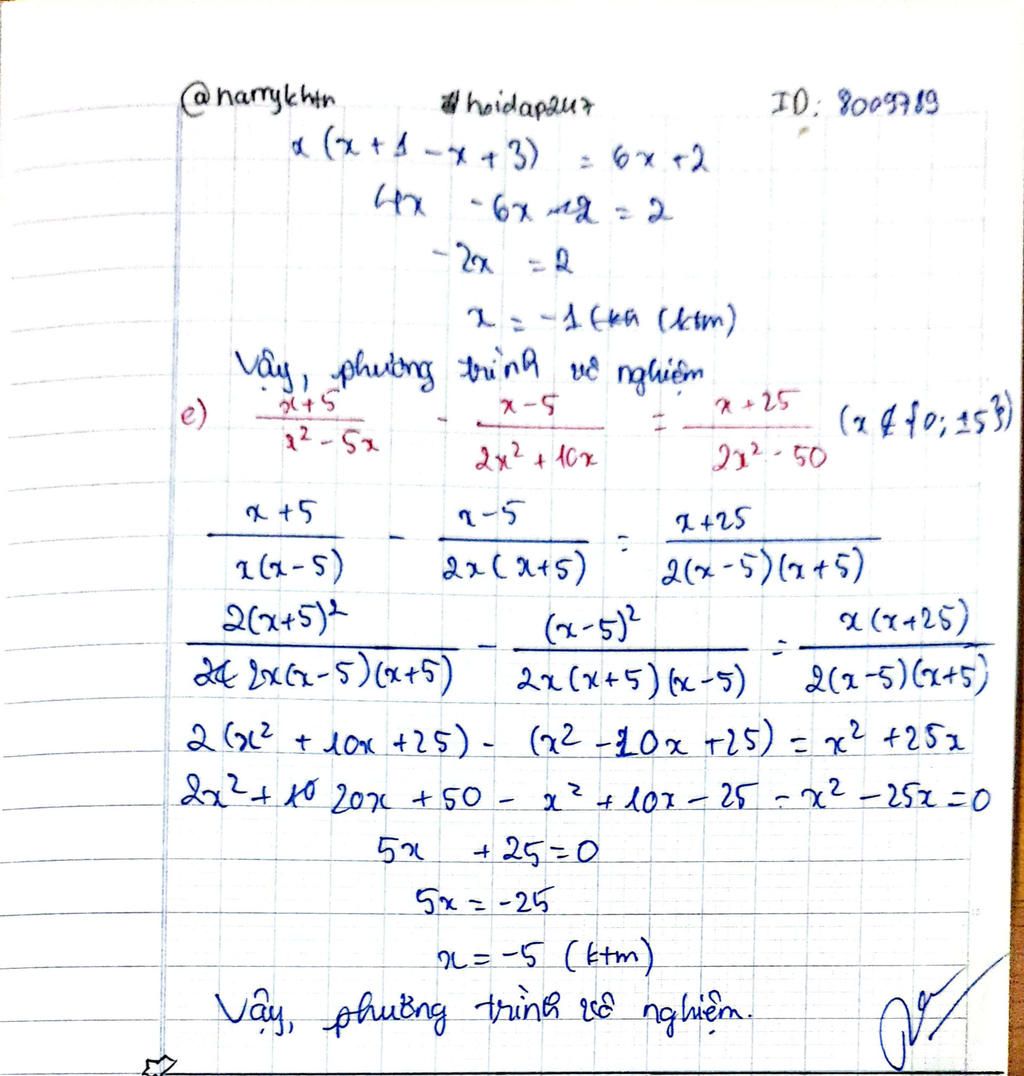 @narrykhtn #hoidap247 ID: 8009789
x(x+1-x+3) = 6x+2
4x - 6x = 2
-2x = 2
x = -1 (ktm)
Vậy, phương trình vô nghiệm
e) (x+5)/(x² - 5x) - (x-5)/(2x² + 10x) = (x+25)/(2x² - 50) (x ∉ {0; ±5})
(x+5)/(x(x-5)) - (x-5)/(2x(x+5)) = (x+25)/(2(x-5)(x+5))
2(x+5)²/(2x(x-5)(x+5)) - (x-5)²/(2x(x+5)(x-5)) = x(x+25)/(2(x-5)(x+5))
2(x² + 10x + 25) - (x² - 10x + 25) = x² + 25x
2x² + 20x + 50 - x² + 10x - 25 - x² - 25x = 0
5x + 25 = 0
5x = -25
x = -5 (ktm)
Vậy, phương trình vô nghiệm.